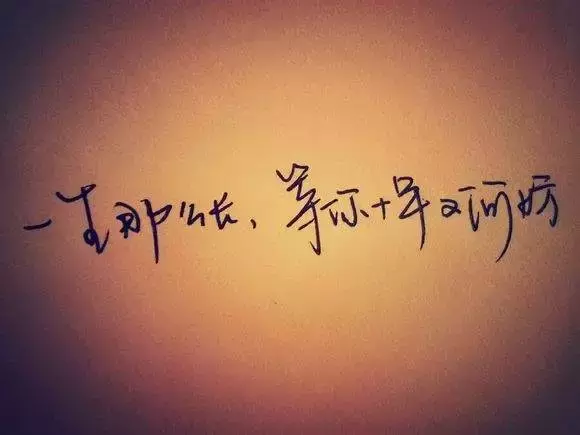 一生那么长、等你十年又何妨